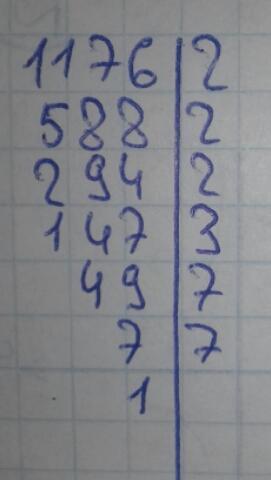 1176 | 2
588 | 2
294 | 2
147 | 3
49 | 7
7 | 7
1 |